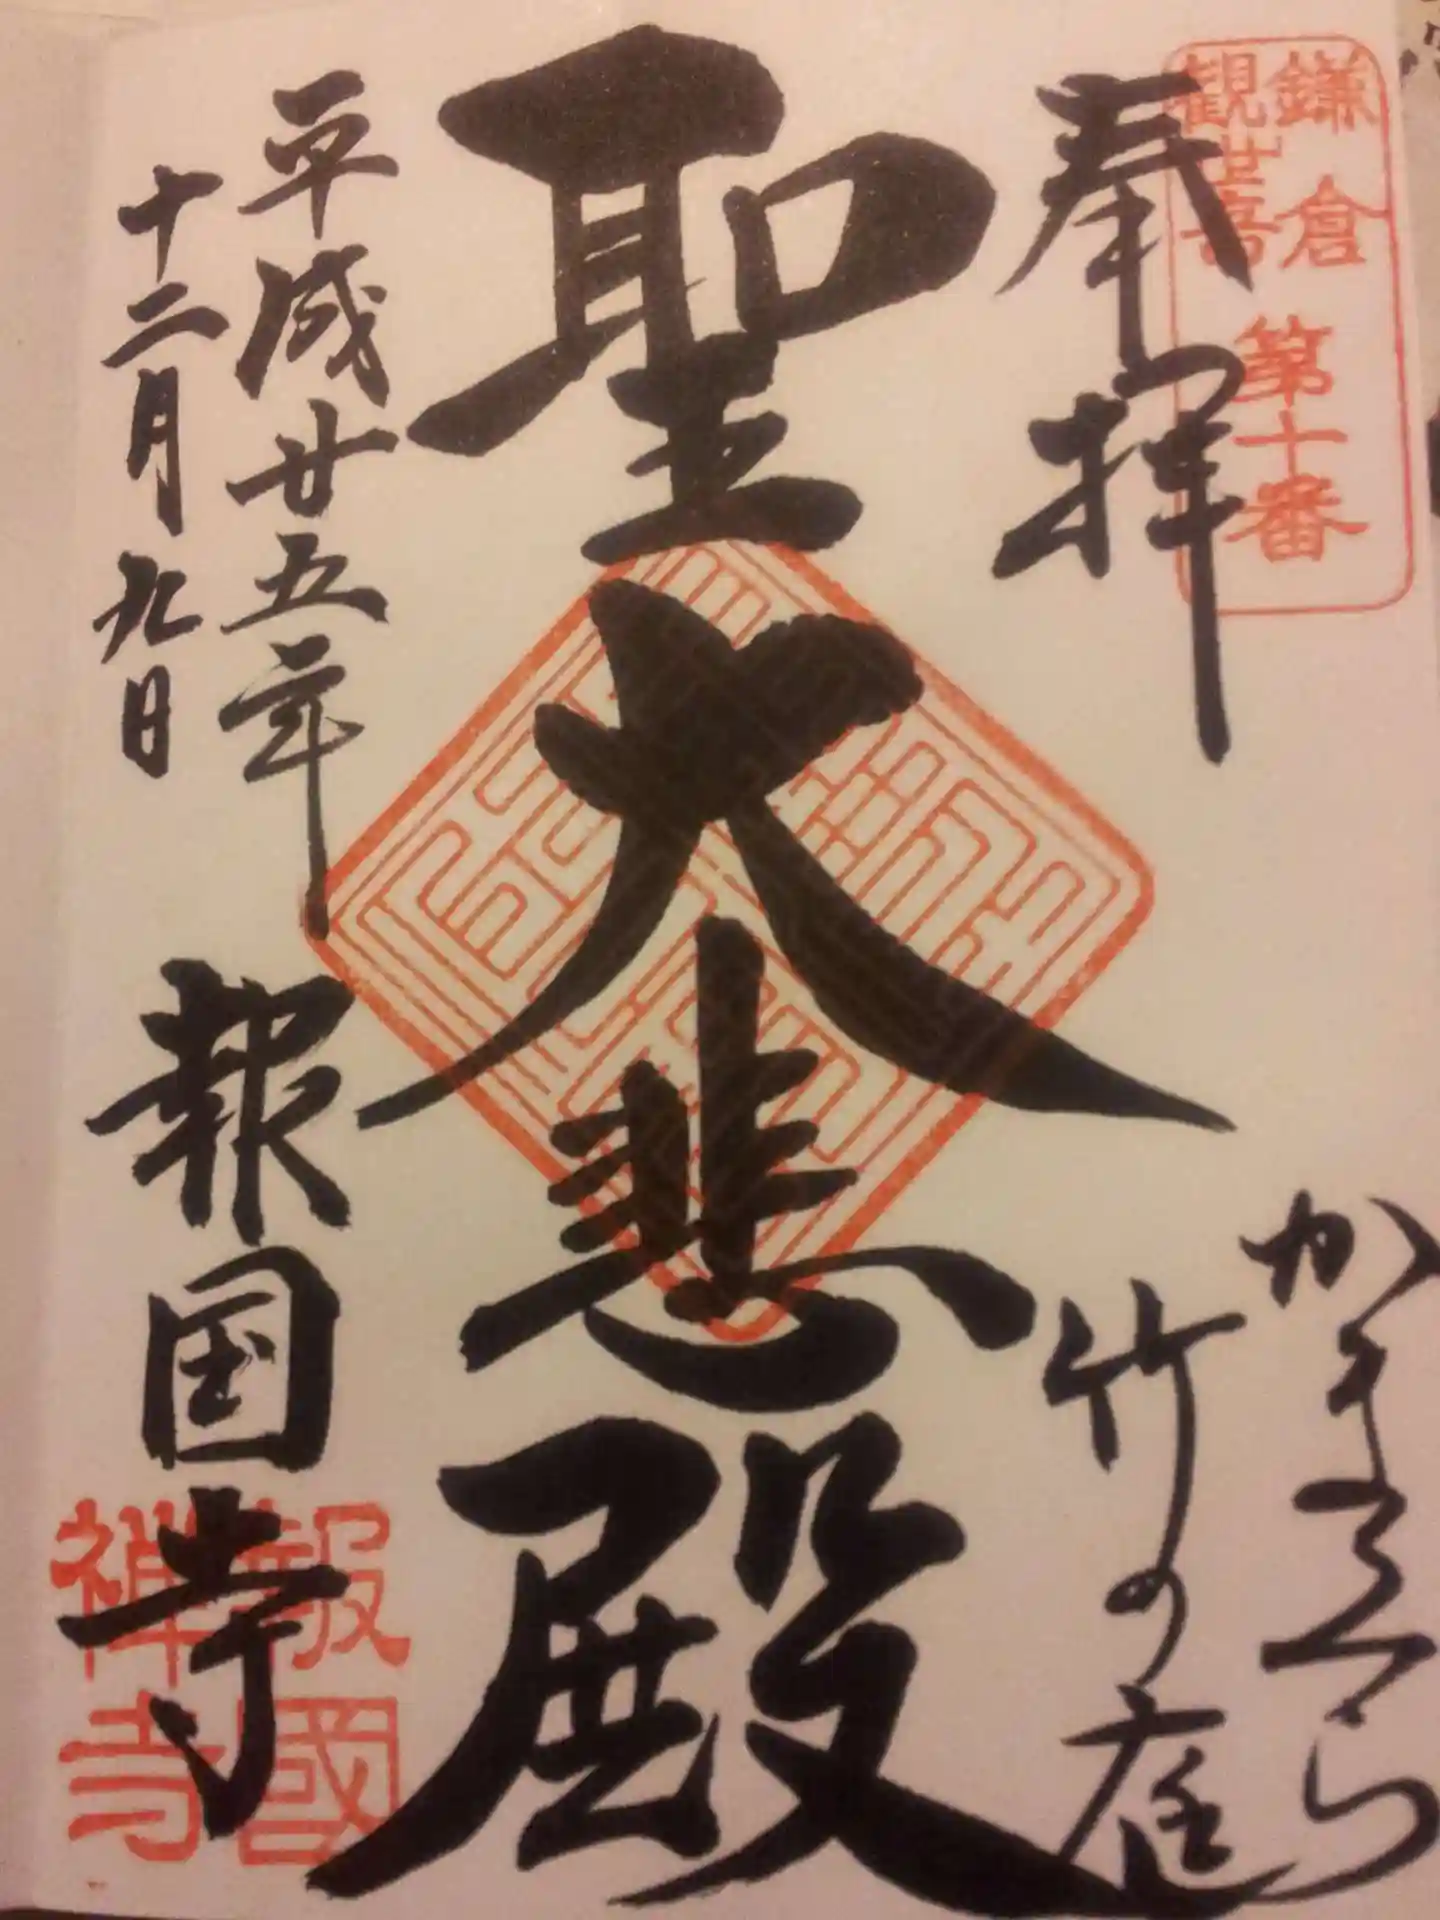 鎌倉
観世音
第十番
奉拝
かまくら
竹の庭
聖大悲殿
平成廿五年
十二月九日
報国寺
報國
禅寺